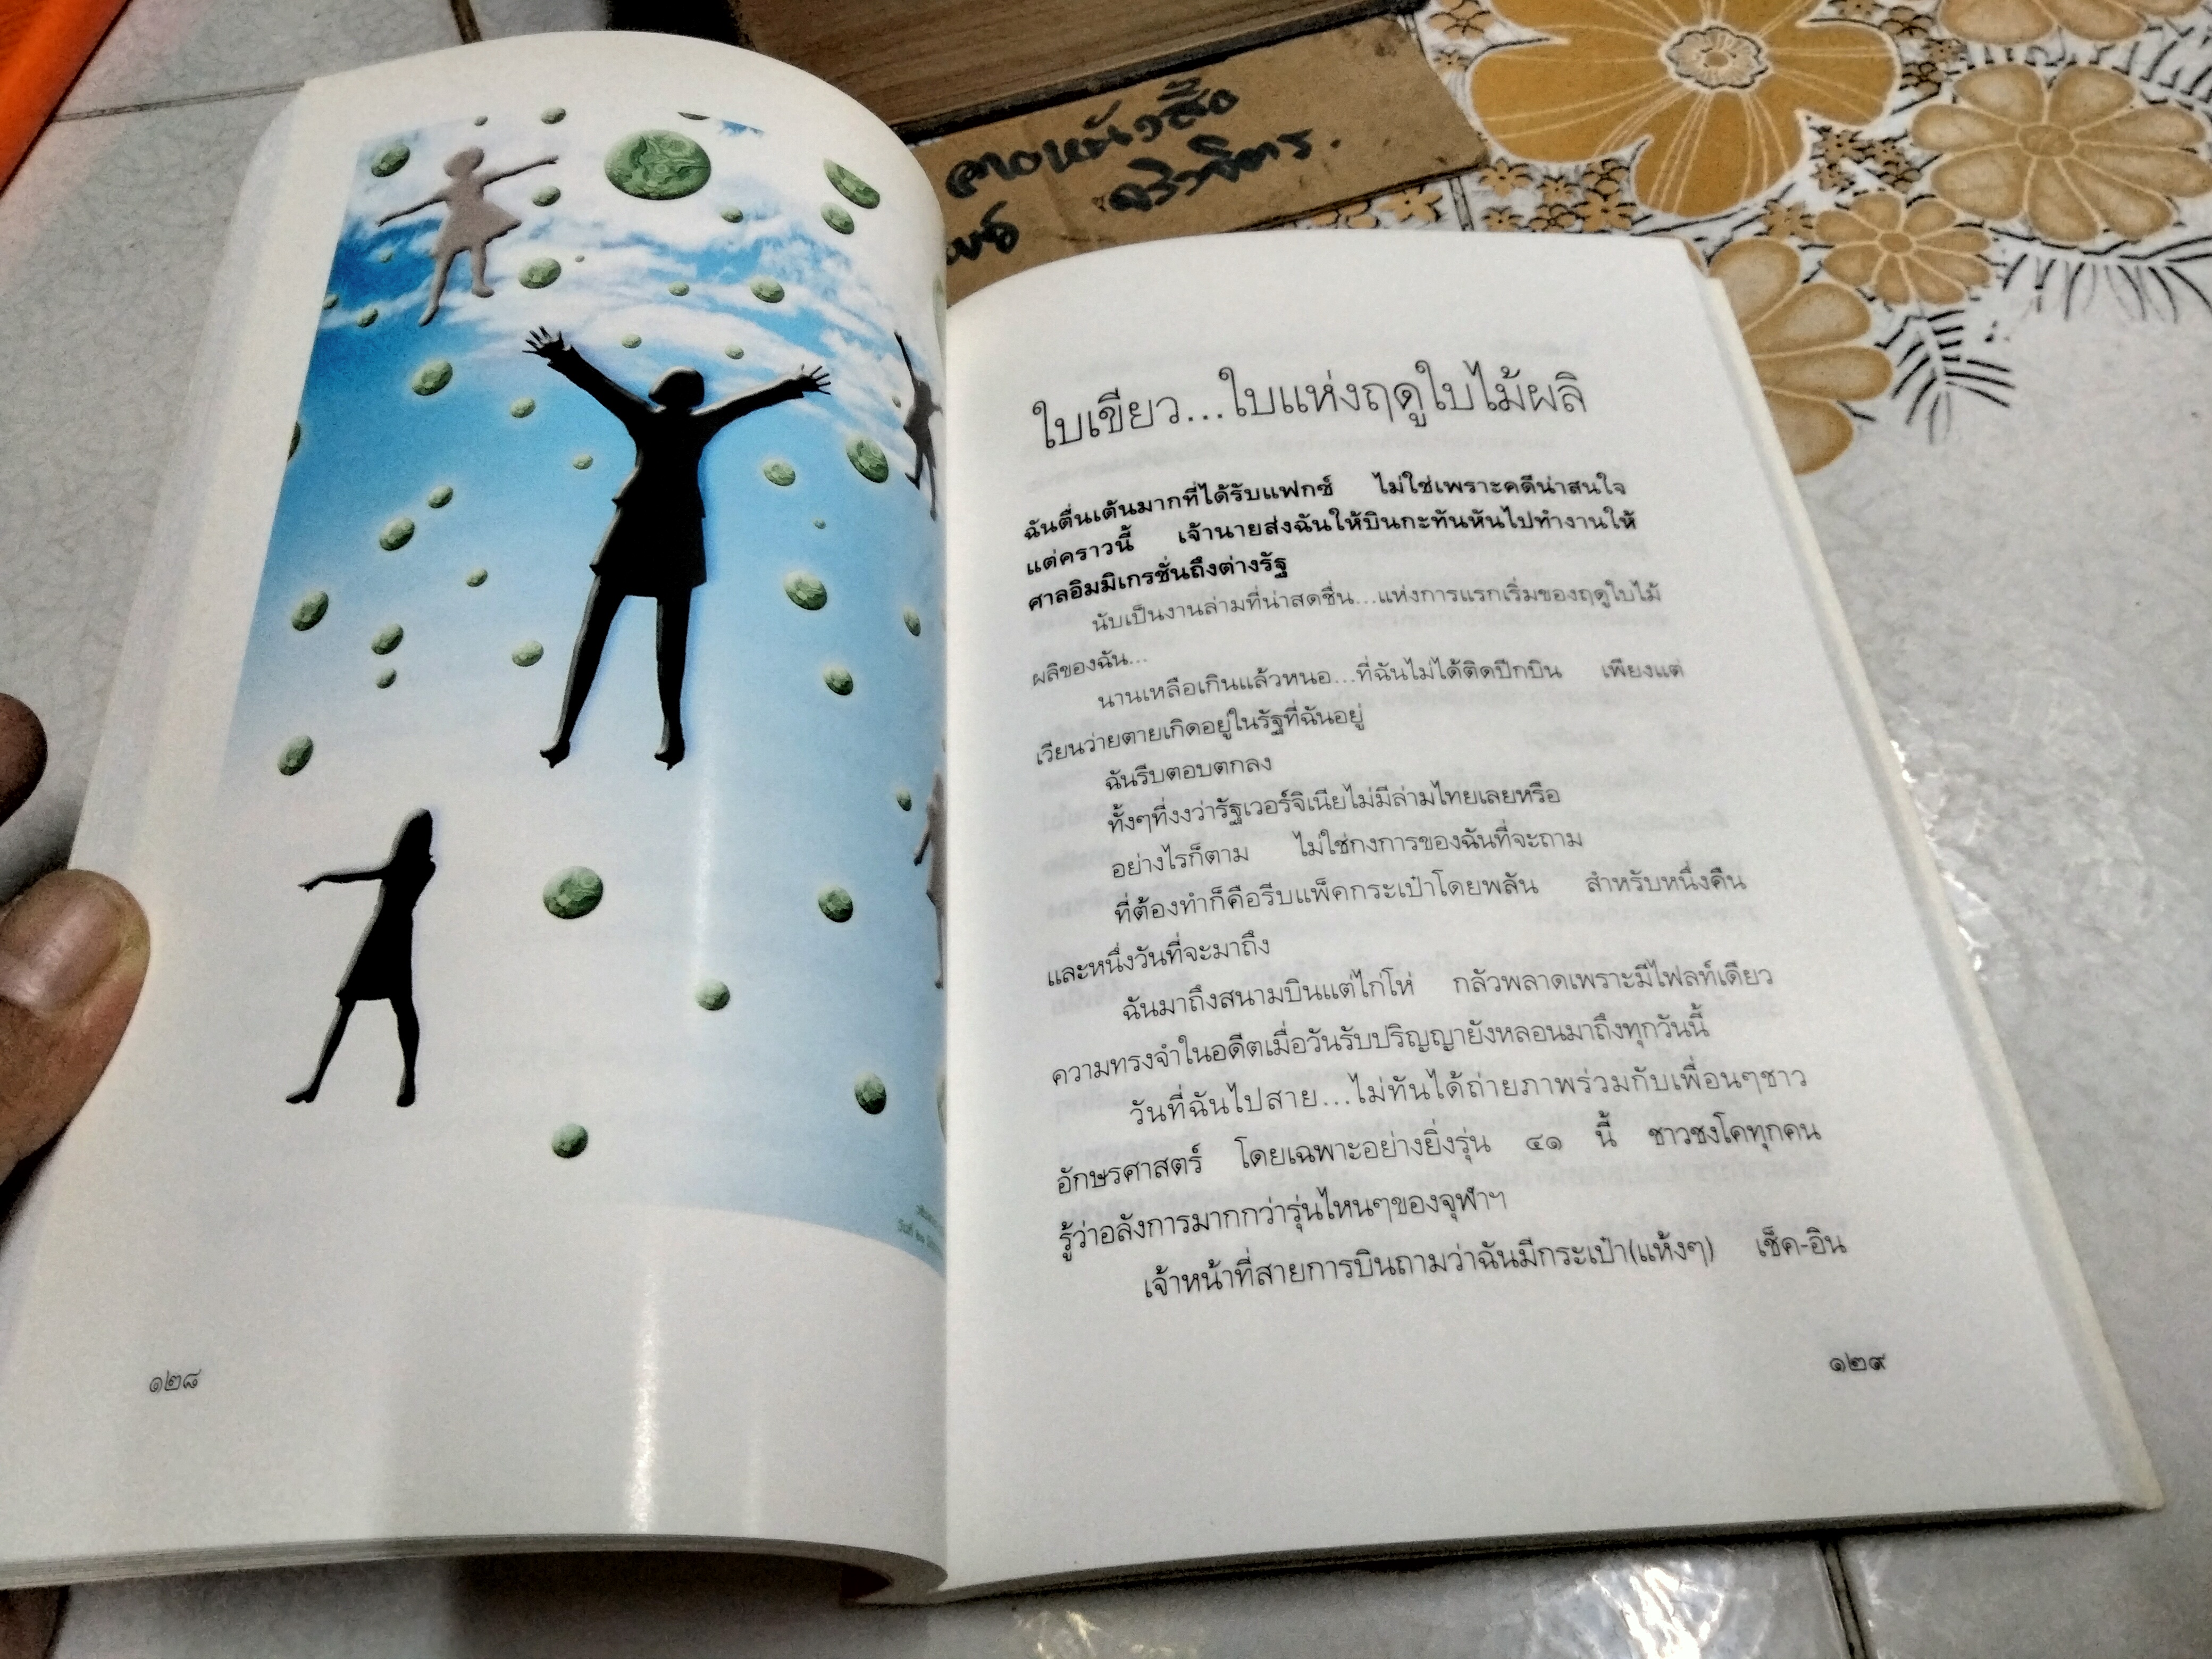 ใบเขียว...ใบแห่งฤดูใบไม้ผลิ
ฉันตื่นเต้นมากที่ได้รับแฟกซ์ ไม่ใช่เพราะคดีน่าสนใจ
แต่คราวนี้ เจ้านายส่งฉันให้บินกะทันหันไปทำงานให้
ศาลอิมมิเกรชั่นถึงต่างรัฐ
นับเป็นงานล่ามที่น่าสดชื่น...แห่งการแรกเริ่มของฤดูใบไม้
ผลิของฉัน...
นานเหลือเกินแล้วหนอ...ที่ฉันไม่ได้ติดปีกบิน เพียงแต่
เวียนว่ายตายเกิดอยู่ในรัฐที่ฉันอยู่
ฉันรีบตอบตกลง
ทั้งๆที่งงว่ารัฐเวอร์จิเนียไม่มีล่ามไทยเลยหรือ
อย่างไรก็ตาม ไม่ใช่กงการของฉันที่จะถาม
ที่ต้องทำก็คือรีบแพ็คกระเป๋าโดยพลัน สำหรับหนึ่งคืน
และหนึ่งวันที่จะมาถึง
ฉันมาถึงสนามบินแต่ไก่โห่ กลัวพลาดเพราะมีไฟลท์เดียว
ความทรงจำในอดีตเมื่อวันรับปริญญายังหลอนมาถึงทุกวันนี้
วันที่ฉันไปสาย...ไม่ทันได้ถ่ายภาพร่วมกับเพื่อนๆชาว
อักษรศาสตร์ โดยเฉพาะอย่างยิ่งรุ่น ๔๑ นี้ ชาวชงโคทุกคน
รู้ว่าอลังการมากกว่ารุ่นไหนๆของจุฬาฯ
เจ้าหน้าที่สายการบินถามว่าฉันมีกระเป๋า(แห้งๆ) เช็ค-อิน
๑๒๘
๑๒๙